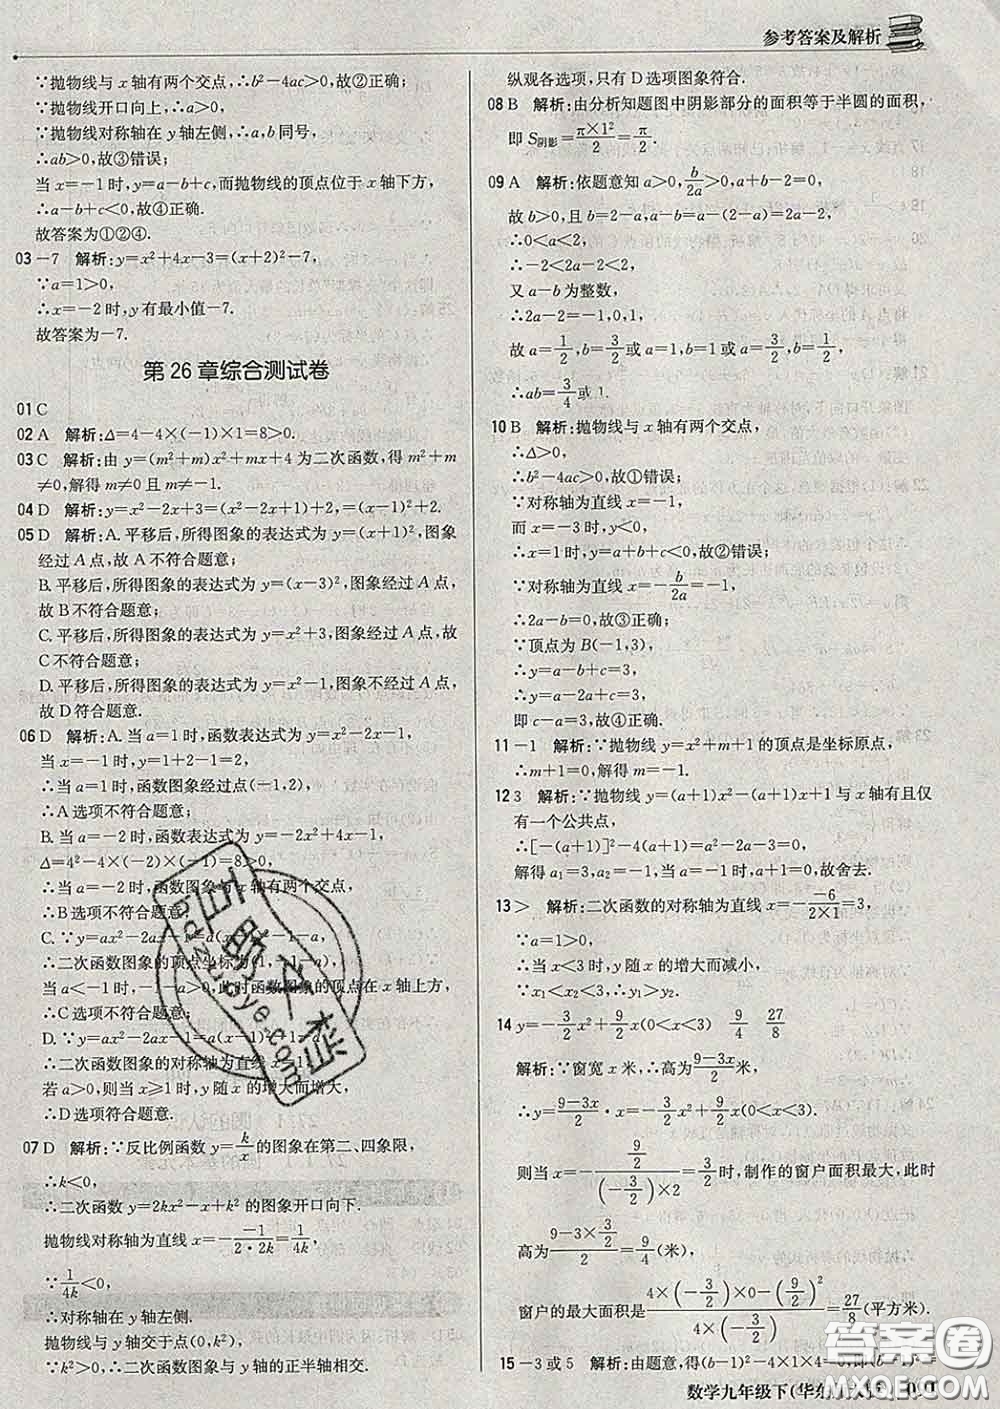 参考答案及解析
∵抛物线与 x 轴有两个交点,∴b²-4ac>0,故②正确;
∵抛物线开口向上,∴a>0,故①正确;
∵抛物线对称轴在 y 轴左侧,∴a,b 同号,
∴ab>0,故③错误;
当 x=-1 时,y=a-b+c,而抛物线的顶点位于 x 轴下方,
∴a-b+c<0,故④正确.
故答案为①②④.
03 -7 解析:y=x²+4x-3=(x+2)²-7,
∵a=1>0,
∴x=-2 时,y 有最小值-7.
故答案为-7.
第 26 章综合测试卷
01 C
02 A 解析:Δ=4-4×(-1)×1=8>0.
03 C 解析:由 y=(m²+m)x²+mx+4 为二次函数,得 m²+m
≠0,解得 m≠0 且 m≠-1.
04 D 解析:y=x²-2x+3=(x²-2x+1)+2,=(x-1)²+2.
05 D 解析:A. 平移后,所得图象的表达式为 y=(x+1)²,图象
经过 A 点,故 A 不符合题意;
B. 平移后,所得图象的表达式为 y=(x-3)²,图象经过 A 点,
故 B 不符合题意;
C. 平移后,所得图象的表达式为 y=x²+3,图象经过 A 点,故
C 不符合题意;
D. 平移后,所得图象的表达式为 y=x²-1,图象不经过 A 点,
故 D 符合题意.
06 D 解析:A. 当 a=1 时,函数表达式为 y=x²-2x-1,
当 x=-1 时,y=1+2-1=2,
∴当 a=1 时,函数图象经过点(-1,2),
∴A 选项不符合题意;
B. 当 a=-2 时,函数表达式为 y=-2x²+4x-1,
Δ=4²-4×(-2)×(-1)=8>0,
∴当 a=-2 时,函数图象与 x 轴有两个交点,
∴B 选项不符合题意;
C. ∵y=ax²-2ax-1=a(x-1)²-1-a,
∴二次函数图象的顶点坐标为(1,-1-a),
当 a<-1 时,-1-a>0,此时函数图象的顶点在 x 轴上方,
∴C 选项不符合题意;
D. ∵y=ax²-2ax-1=a(x-1)²-1-a,
∴二次函数图象的对称轴为直线 x=1,
若 a>0,则当 x≥1 时,y 随 x 的增大而增大,
∴D 选项符合题意.
07 D 解析:∵反比例函数 y=k/x 的图象在第二、四象限,
∴k<0,
∴二次函数 y=2kx²-x+k² 的图象开口向下.
抛物线对称轴为直线 x=-(-1)/(2·2k)=1/(4k),
∵1/(4k)<0,
∴对称轴在 y 轴左侧.
抛物线与 y 轴交于点(0,k²),
∵k²>0,∴二次函数图象与 y 轴的正半轴相交.
纵观各选项,只有 D 选项图象符合.
08 B 解析:由分析知题图中阴影部分的面积等于半圆的面积,
即 S阴影=(π×1²)/2=π/2.
09 A 解析:依题意知 a>0,b/(2a)>0,a+b-2=0,
故 b>0,且 b=2-a,a-b=a-(2-a)=2a-2,
∴0<a<2,
∴-2<2a-2<2,
又 a-b 为整数,
∴2a-2=-1,0,1,
故 a=1/2,b=3/2 或 a=1,b=1 或 a=3/2,b=1/2,
∴ab=3/4 或 1.
10 B 解析:抛物线与 x 轴有两个交点,
∴Δ>0,
∴b²-4ac>0,故①错误;
∵对称轴为直线 x=-1,
而 x=-3 时,y<0,
∴x=1 时,y<0,故②错误;
∵对称轴为直线 x=-b/(2a)=-1,
∴2a-b=0,故③正确;
∵顶点为 B(-1,3),
∴y=a-b+c=3,
∴y=a-2a+c=3,
即 c-a=3,故④正确.
11 -1 解析:∵抛物线 y=x²+m+1 的顶点是坐标原点,
∴m+1=0,解得 m=-1.
12 3 解析:∵抛物线 y=(a+1)x²-(a+1)x+1 与 x 轴有且仅
有一个公共点,
∴[-(a+1)]²-4(a+1)=a²-2a-3=0,
解得 a₁=3,a₂=-1,当 a=-1 时,a+1=0,故舍去.
13 > 解析:二次函数的对称轴为直线 x=-(-6)/(2×1)=3,
∵a=1>0,
∴当 x<3 时,y 随 x 的增大而减小,
∵x₁<x₂<3,∴y₁>y₂.
14 y=-3/2x²+9/2x(0<x<3) 9/4 27/8
解析:∵窗宽 x 米,∴高为(9-3x)/2米,
∴y=(9-3x)/2·x=-3/2x²+9/2x(0<x<3).
则当 x=-(9/2)/((-3/2)×2)=3/2时,制作的窗户面积最大,此时
高为(9-3×3/2)/2=9/4(米),
窗户的最大面积是(4×(-3/2)×0-(9/2)²)/(4×(-3/2))=27/8(平方米).
15 -3 或 5 解析:由题意,得(b-1)²-4×1×4=0,即(b-1)²=
数学九年级下(华东
答案圈